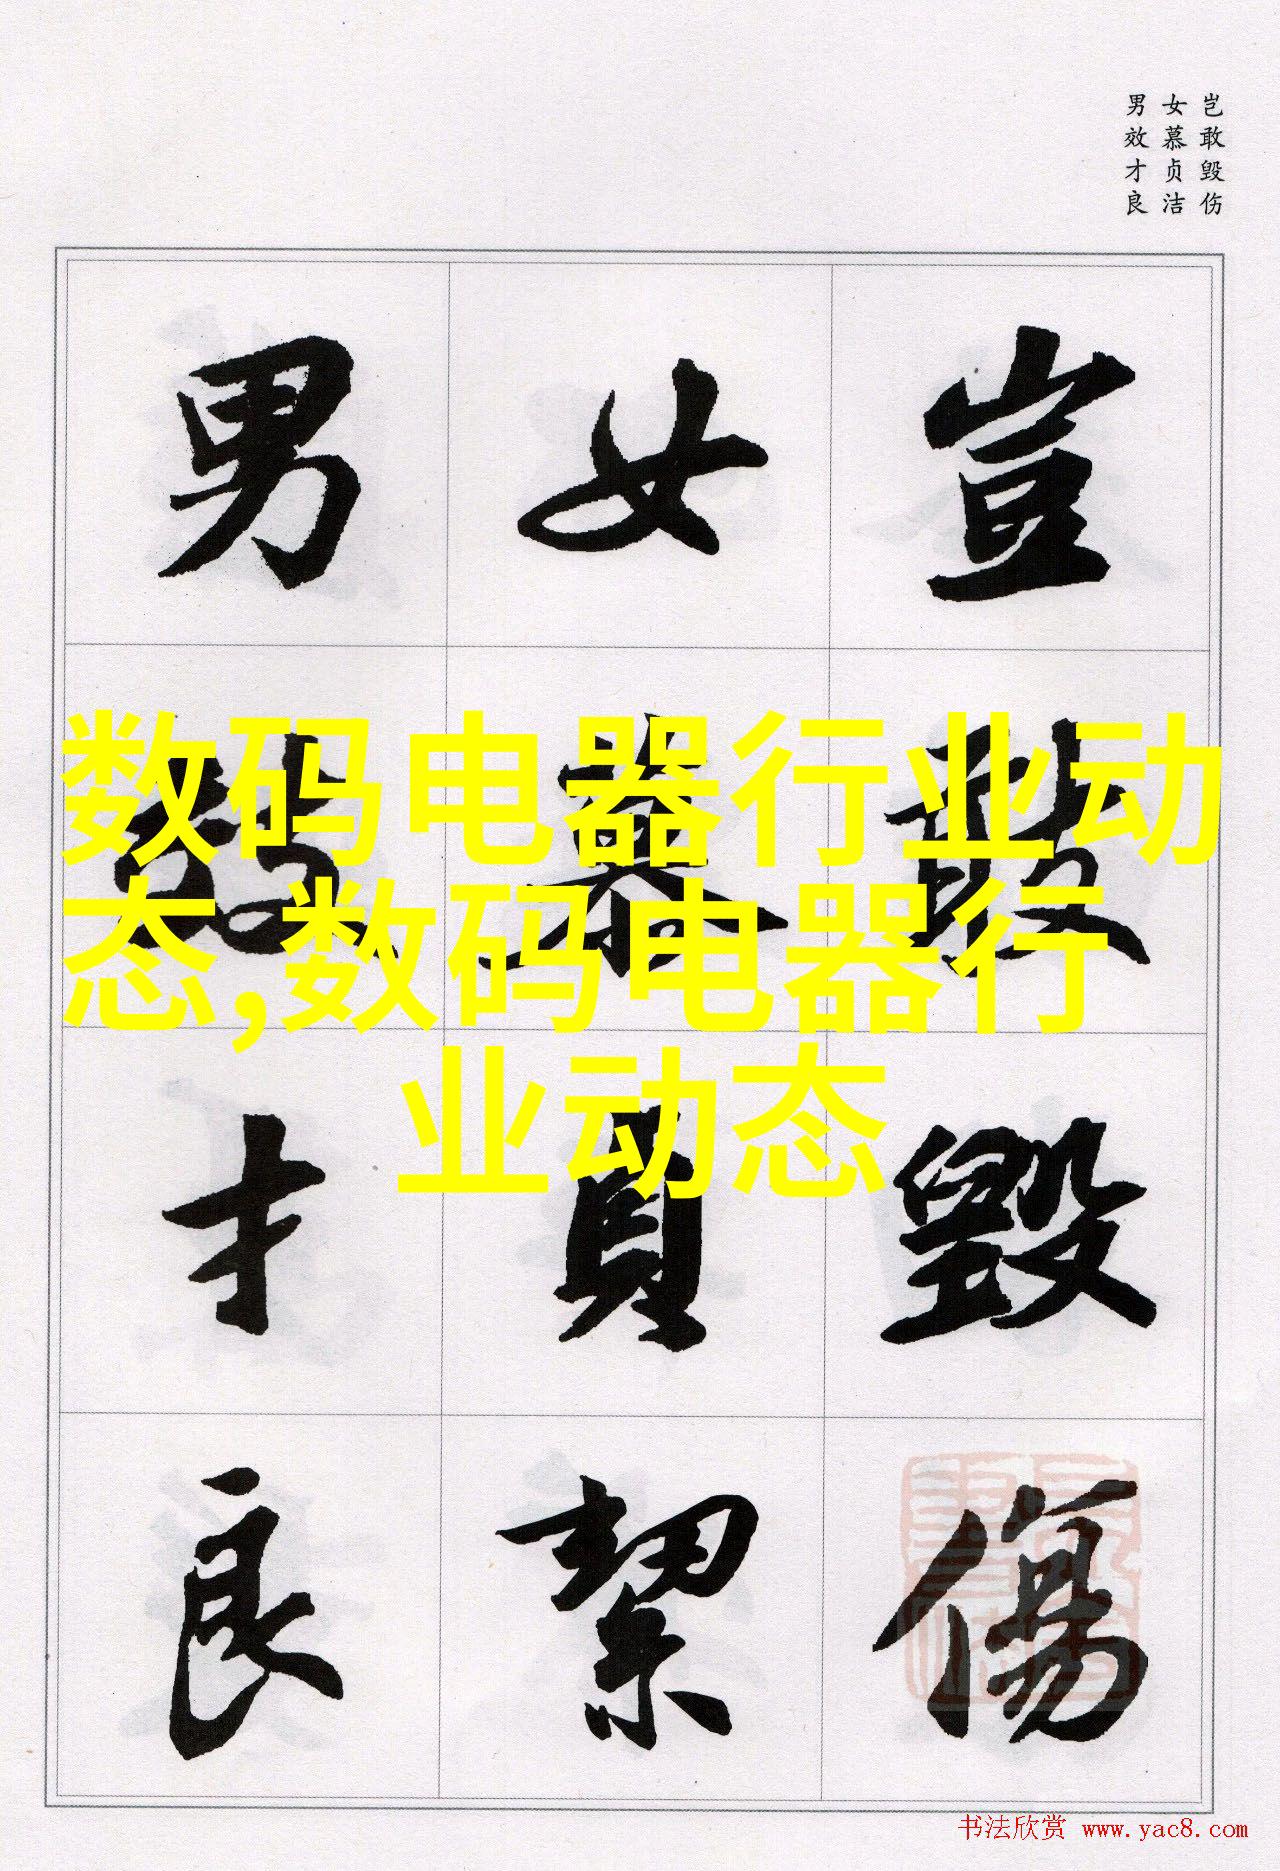 岂敢毁伤
女慕贞洁
男效才良
豈敢毀傷
女慕貞絜
男效才良
数码电器行业动
态,数码电器行
业动态
书法欣赏 www.yac8.com